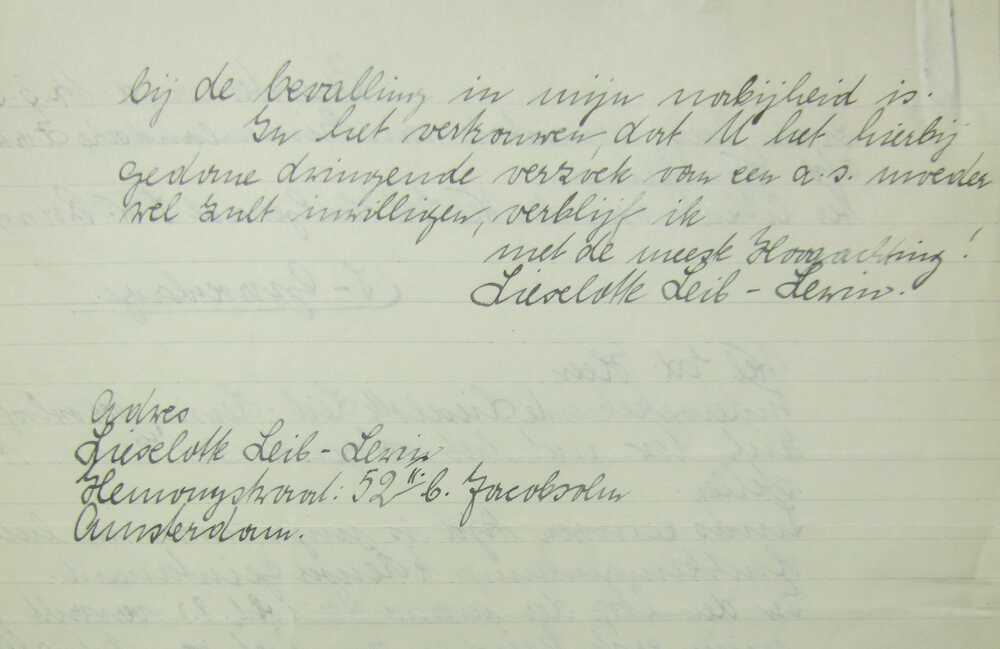 bij de bevalling in mijn nabijheid is.
In het vertrouwen, dat U het hierbij
gedane dringende verzoek van een a.s. moeder
wel zult inwilligen, verblijf ik
met de meeste Hoogachting!
Lieselotte Leib - Lewin.
Adres
Lieselotte Leib - Lewin
Hemonystraat: 52 II. b. Jacobsohn
Amsterdam.